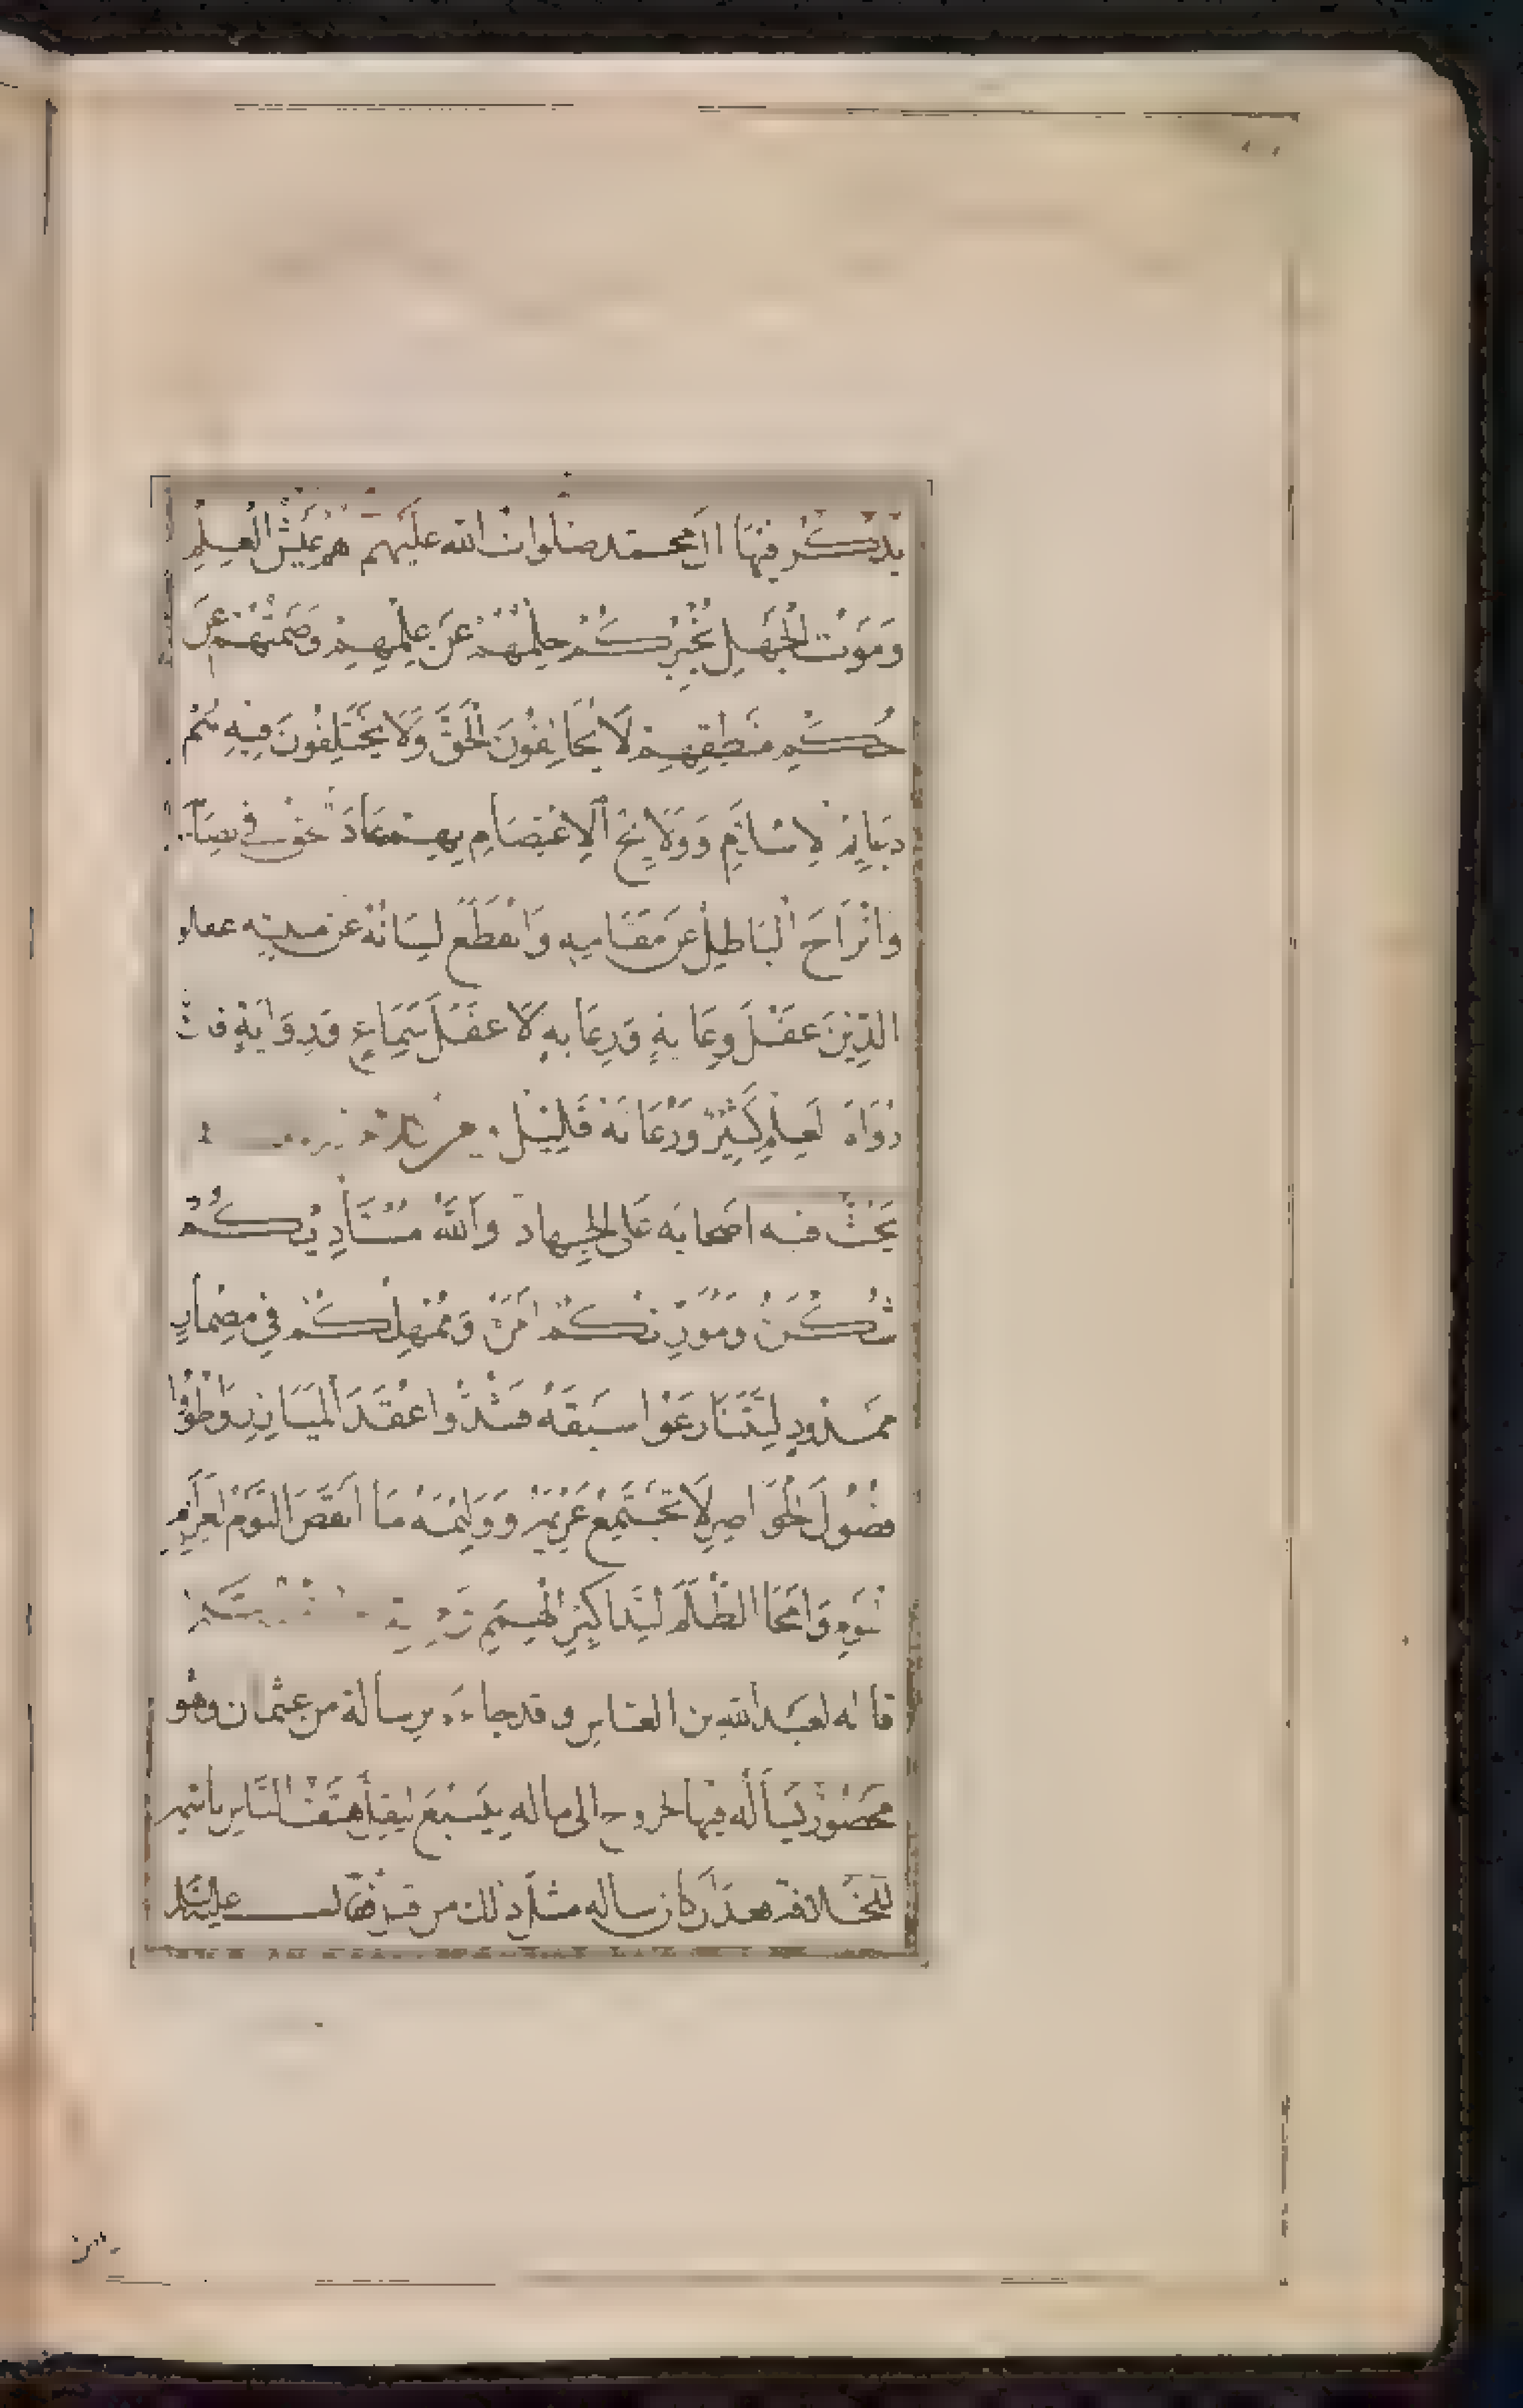 يذكر فيها ال محمد صلوات الله عليهم هم عيش العلم
وَمَوْت الجَهْلِ يُخْبِرُكُمْ حِلْمُهُمْ عَنْ عِلْمِهِمْ وَصَمْتُهُمْ عَنْ
حُكْمِ مَنْطِقِهِمْ لَا يُخَالِفُونَ الْحَقَّ وَلَا يَخْتَلِفُونَ فِيهِ هُمْ
الاسلام وَوَلَائِج الاعْتِصَامِ بِهِمْ عَادَ الحق في نصا
وَانْزَاحَ الْبَاطِلُ عَن مَقَامِهِ وَانْقَطَعَ لِسَانُهُ عَن منبته عقلوا
الدِّينَ عَقْلَ وِعَايَةٍ وَرِعَايَةٍ لَا عَقْلَ سَمَاعٍ وَرِوَايَةٍ فان
رُوَاةَ العِلْمِ كَثِيرٌ وَرُعَاتَهُ قَلِيلٌ
يَحُثُّ فيه اصحابه على الجهاد وَاللهُ مُسْتَأْدِيكُمْ
شُكْرَهُ وَمُوَرِّثُكُمْ أَمْرَهُ وَمُمْهِلُكُمْ فِي مِضْمَارٍ
مَمْدُودٍ لِتَتَنَازَعُوا سَبَقَهُ فَشُدُّوا عُقَدَ الْمَيَازِرِ وَاطْوُوا
فُضُولَ الْخَوَاصِرِ لَا تَجْتَمِعُ عَزِيمَةٌ وَوَلِيمَةٌ مَا انْقَضَ النَّوْمَ لعزائم
الْيَوْمِ وَامْحَا الظُّلَمَ لِتَذَاكِيرِ الْهِمَمِ
قاله لعبد الله بن العباس وقد جاءه برسالة من عثمان وهو
مَحْصُورٌ يَسْأَلُه فيها الخروج الى ماله بِيَنْبُعَ ليقل هَتْفُ النَّاسِ باسمه
للخلافة بعد ان كان ساله مثل ذلك من قبل فقال عليه السلام